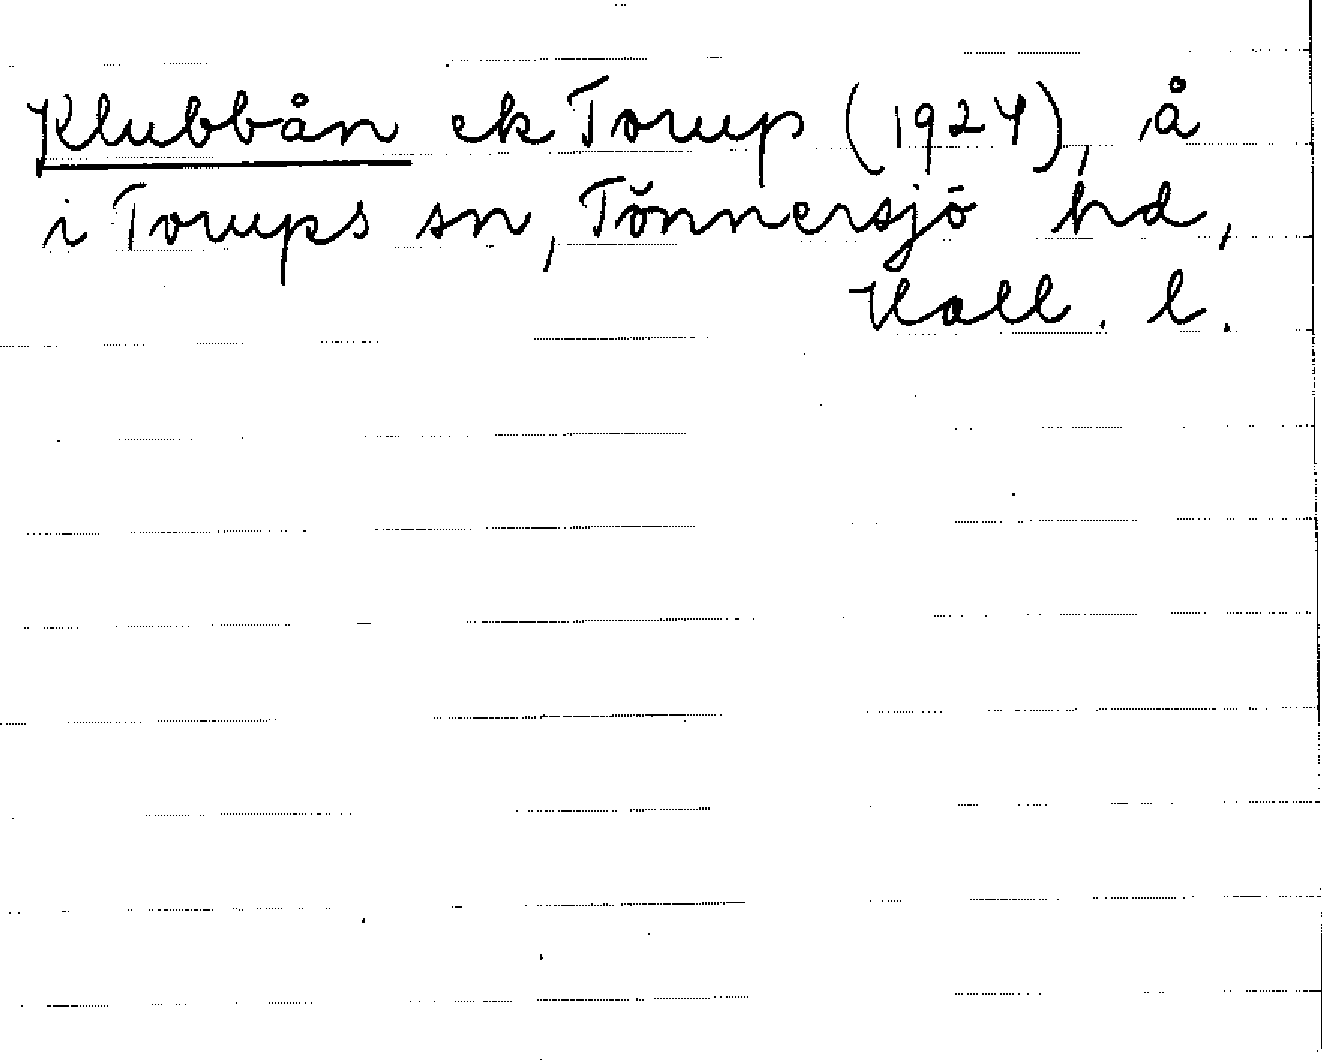 Klubbån ek Torup (1924), å
i Torups sn, Tönnersjö hd,
Hall. l.